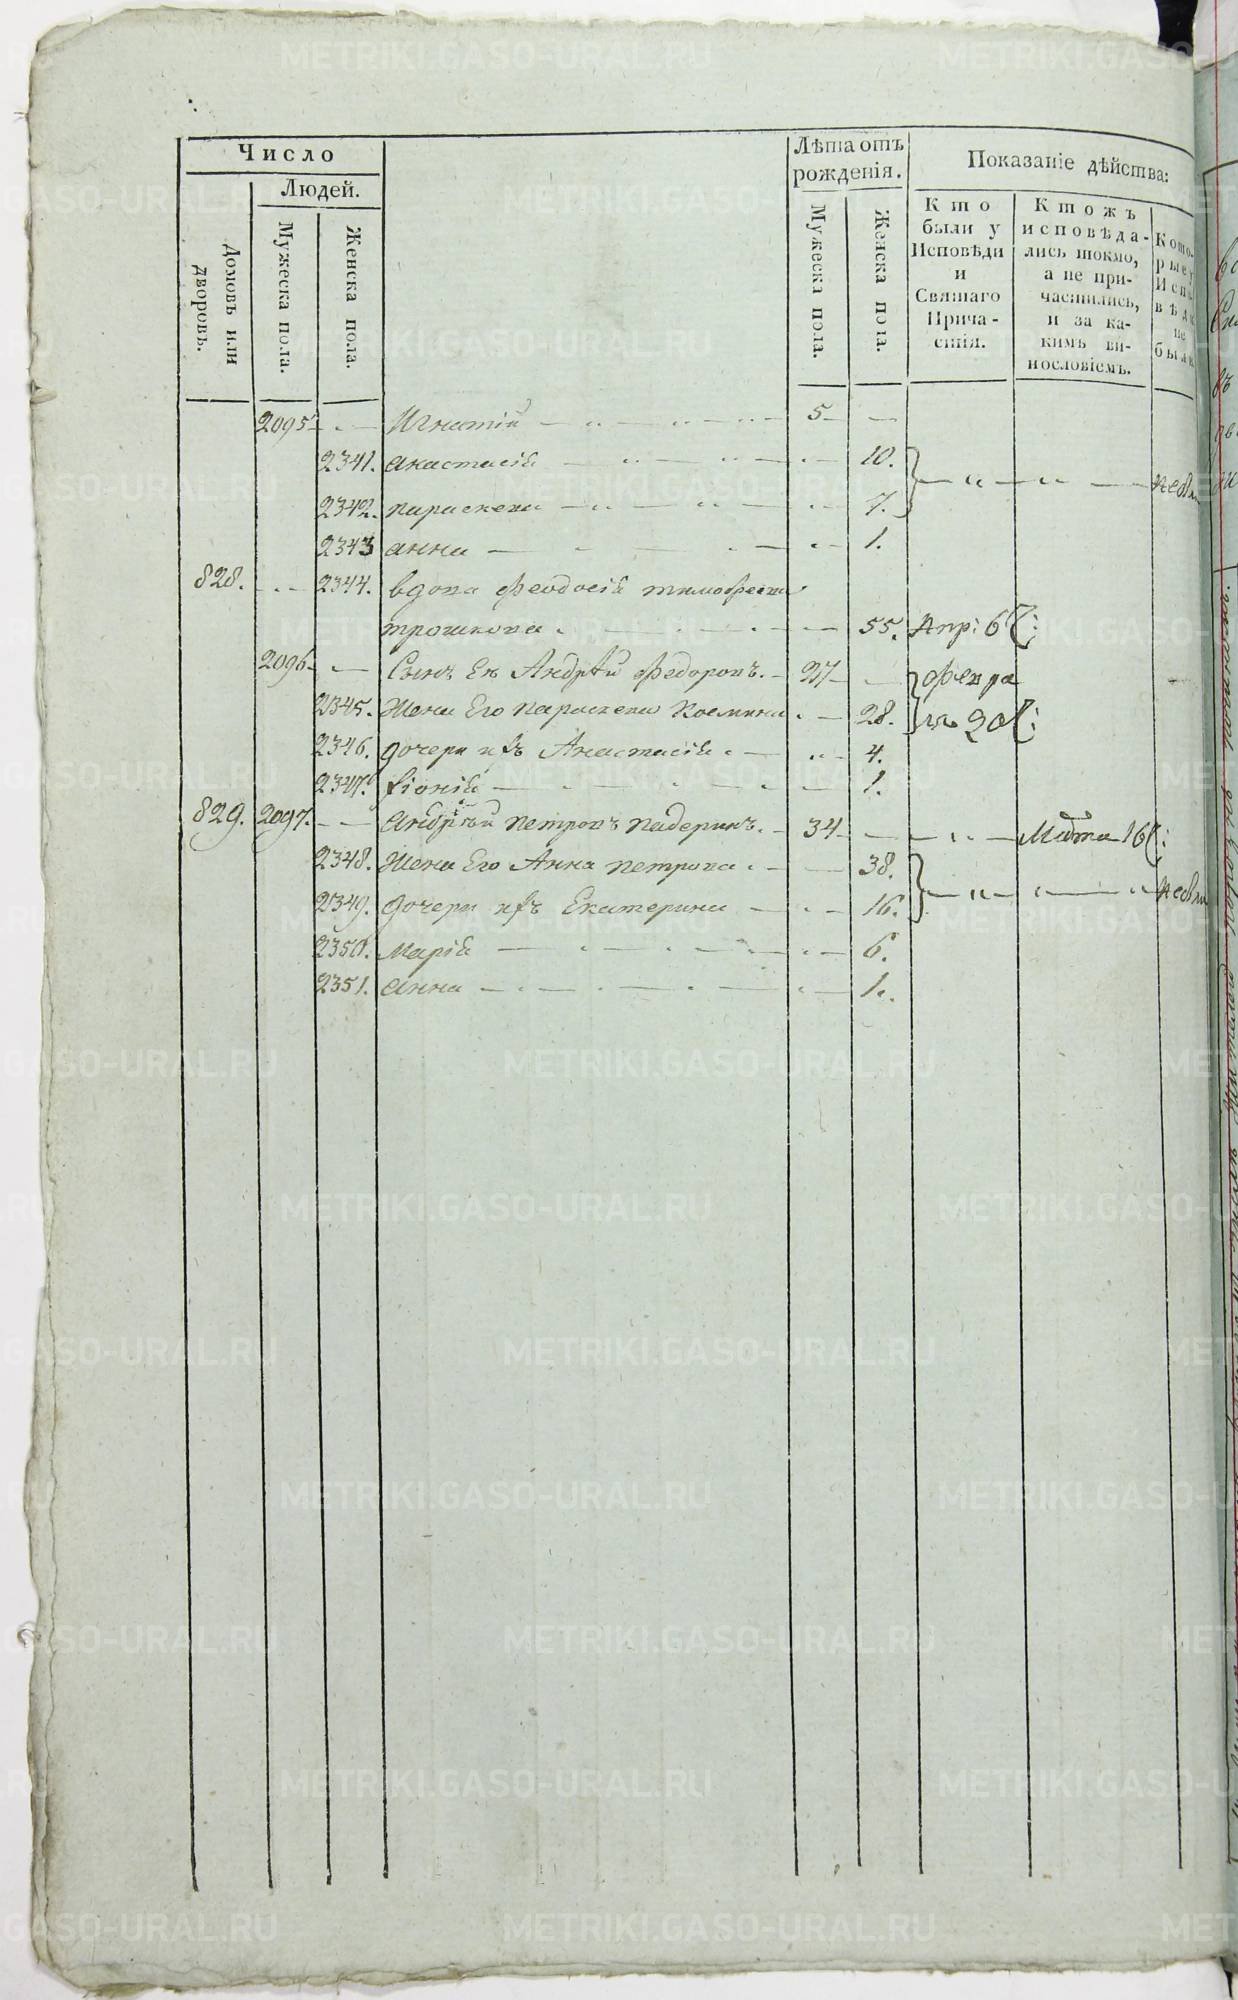 Число
Людей.
Домовъ или дворовъ.
Мужеска пола.
Женска пола.
Лѣта отъ рожденія.
Мужеска пола.
Женска пола.
Показаніе дѣйства:
Кто были у Исповѣди и Святаго Причастія.
Ктожъ исповѣдались токмо, а не причастились, и за какимъ винословіемъ.
Которые у Исповѣди не были
2095 Игнатій 5
2341. Анастасія 10.
2342. параскева 7.
2343 анна 1.
828. 2344. вдова Феодосія тимофеева
трошкова 55. Апр: 6
2096 Сынъ Ея Андрѣй Федоровъ. 27 Февра
2345. Жена Его параскева Космина 28. ля 20
2346. дочери ихъ Анастасія 4.
2347. 1.
829. 2097. андрѣй петровъ падеринъ. 34 Марта 16
2348. Жена Его Анна петрова 38.
2349. дочери ихъ Екатерина 16.
2350. марія 6.
2351. анна 1.
METRIKI.GASO-URAL.RU